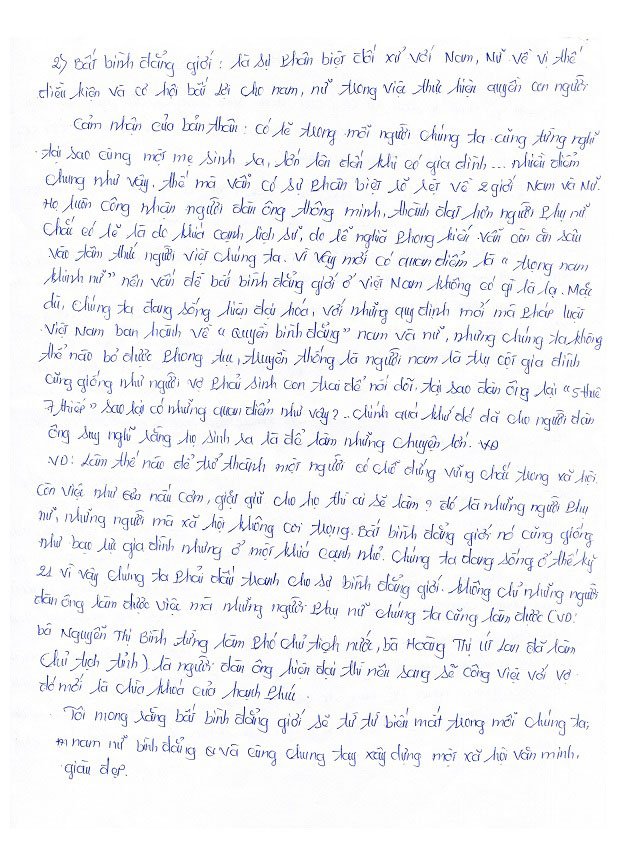 2) Bất bình đẳng giới : là sự phân biệt đối xử với Nam, Nữ về vị thế
điều kiện và cơ hội bất lợi cho nam, nữ trong việc thực hiện quyền con người
Cảm nhận của bản thân : có lẽ trong mỗi người chúng ta cũng từng nghĩ
tại sao cùng một mẹ sinh ra, lớn lên đến khi có gia đình ... nhiều điểm
chung như vậy. thế mà vẫn có sự phân biệt rõ rệt về 2 giới Nam và Nữ.
Họ luôn công nhận người đàn ông thông minh, thành đạt hơn người phụ nữ
chắc có lẽ là do khía cạnh lịch sử, do lễ nghĩa phong kiến vẫn còn ăn sâu
vào tâm thức người việt chúng ta. Vì vậy mới có quan điểm là “ trọng nam
khinh nữ ” nên vấn đề bất bình đẳng giới ở Việt Nam không có gì là lạ. Mặc
dù, chúng ta đang sống hiện đại hóa, với những quy định mới mà pháp luật
Việt Nam ban hành về “ Quyền bình đẳng ” nam và nữ, nhưng chúng ta không
thể nào bỏ được phong tục, truyền thống là người nam là trụ cột gia đình
cũng giống như người vợ phải sinh con trai để nối dõi. tại sao đàn ông lại “ 5 thê
7 thiếp ” sao lại có những quan điểm như vậy ? .. chính quá khứ đó đã cho người đàn
ông suy nghĩ rằng họ sinh ra là để làm những chuyện lớn. VD
VD : Làm thế nào để trở thành một người có chỗ đứng vững chắc trong xã hội
còn việc như nấu cơm, giặt giũ cho họ thì ai sẽ làm ? đó là những người phụ
nữ, những người mà xã hội không coi trọng. Bất bình đẳng giới nó cũng giống
như bạo lực gia đình nhưng ở một khía cạnh nhỏ. Chúng ta đang sống ở thế kỷ
21 vì vậy chúng ta phải đấu tranh cho sự bình đẳng giới. không chỉ những người
đàn ông làm được việc mà những người phụ nữ chúng ta cũng làm được (VD:
bà Nguyễn Thị Bình từng làm phó chủ tịch nước, bà Hoàng Thị Út Lan đã làm
chủ tịch tỉnh ) là người đàn ông hiện đại thì nên sang sẽ công việc với vợ
đó mới là chìa khoá của hạnh phúc .
Tôi mong rằng bất bình đẳng giới sẽ từ từ biến mất trong mỗi chúng ta,
nam nữ bình đẳng và cùng chung tay xây dựng một xã hội văn minh,
giàu đẹp.